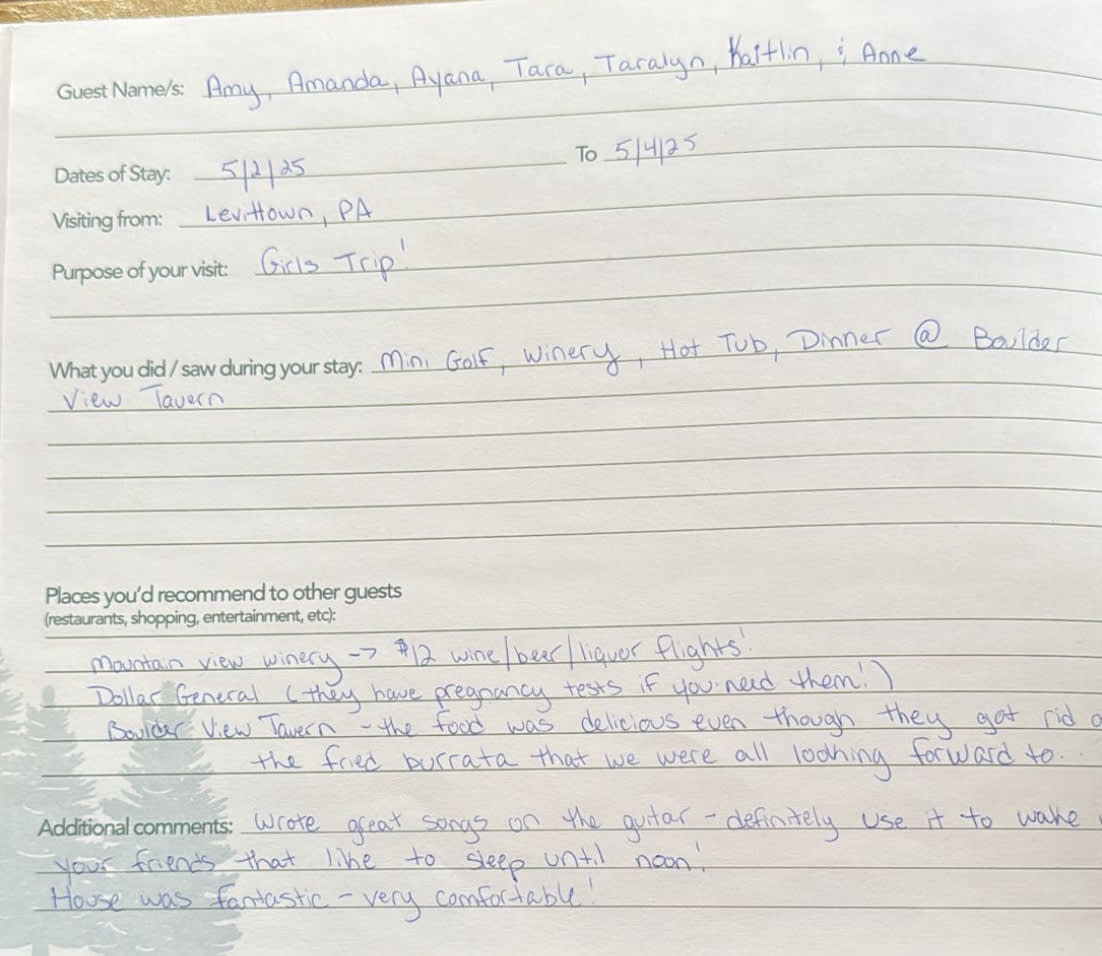 Guest Name/s: Amy, Amanda, Ayana, Tara, Taralyn, Kaitlin, & Anne
Dates of Stay: 5/2/25 To 5/4/25
Visiting from: Levittown, PA
Purpose of your visit: Girls Trip!
What you did / saw during your stay: Mini Golf, Winery, Hot Tub, Dinner @ Boulder
View Tavern
Places you'd recommend to other guests
(restaurants, shopping, entertainment, etc):
Mountain view winery -> $12 wine/beer/liquor flights!
Dollar General (they have pregnancy tests if you need them!)
Boulder View Tavern - the food was delicious even though they got rid
the fried burrata that we were all looking forward to.
Additional comments: Wrote great songs on the guitar - definitely use it to wake
your friends that like to sleep until noon!
House was fantastic - very comfortable!